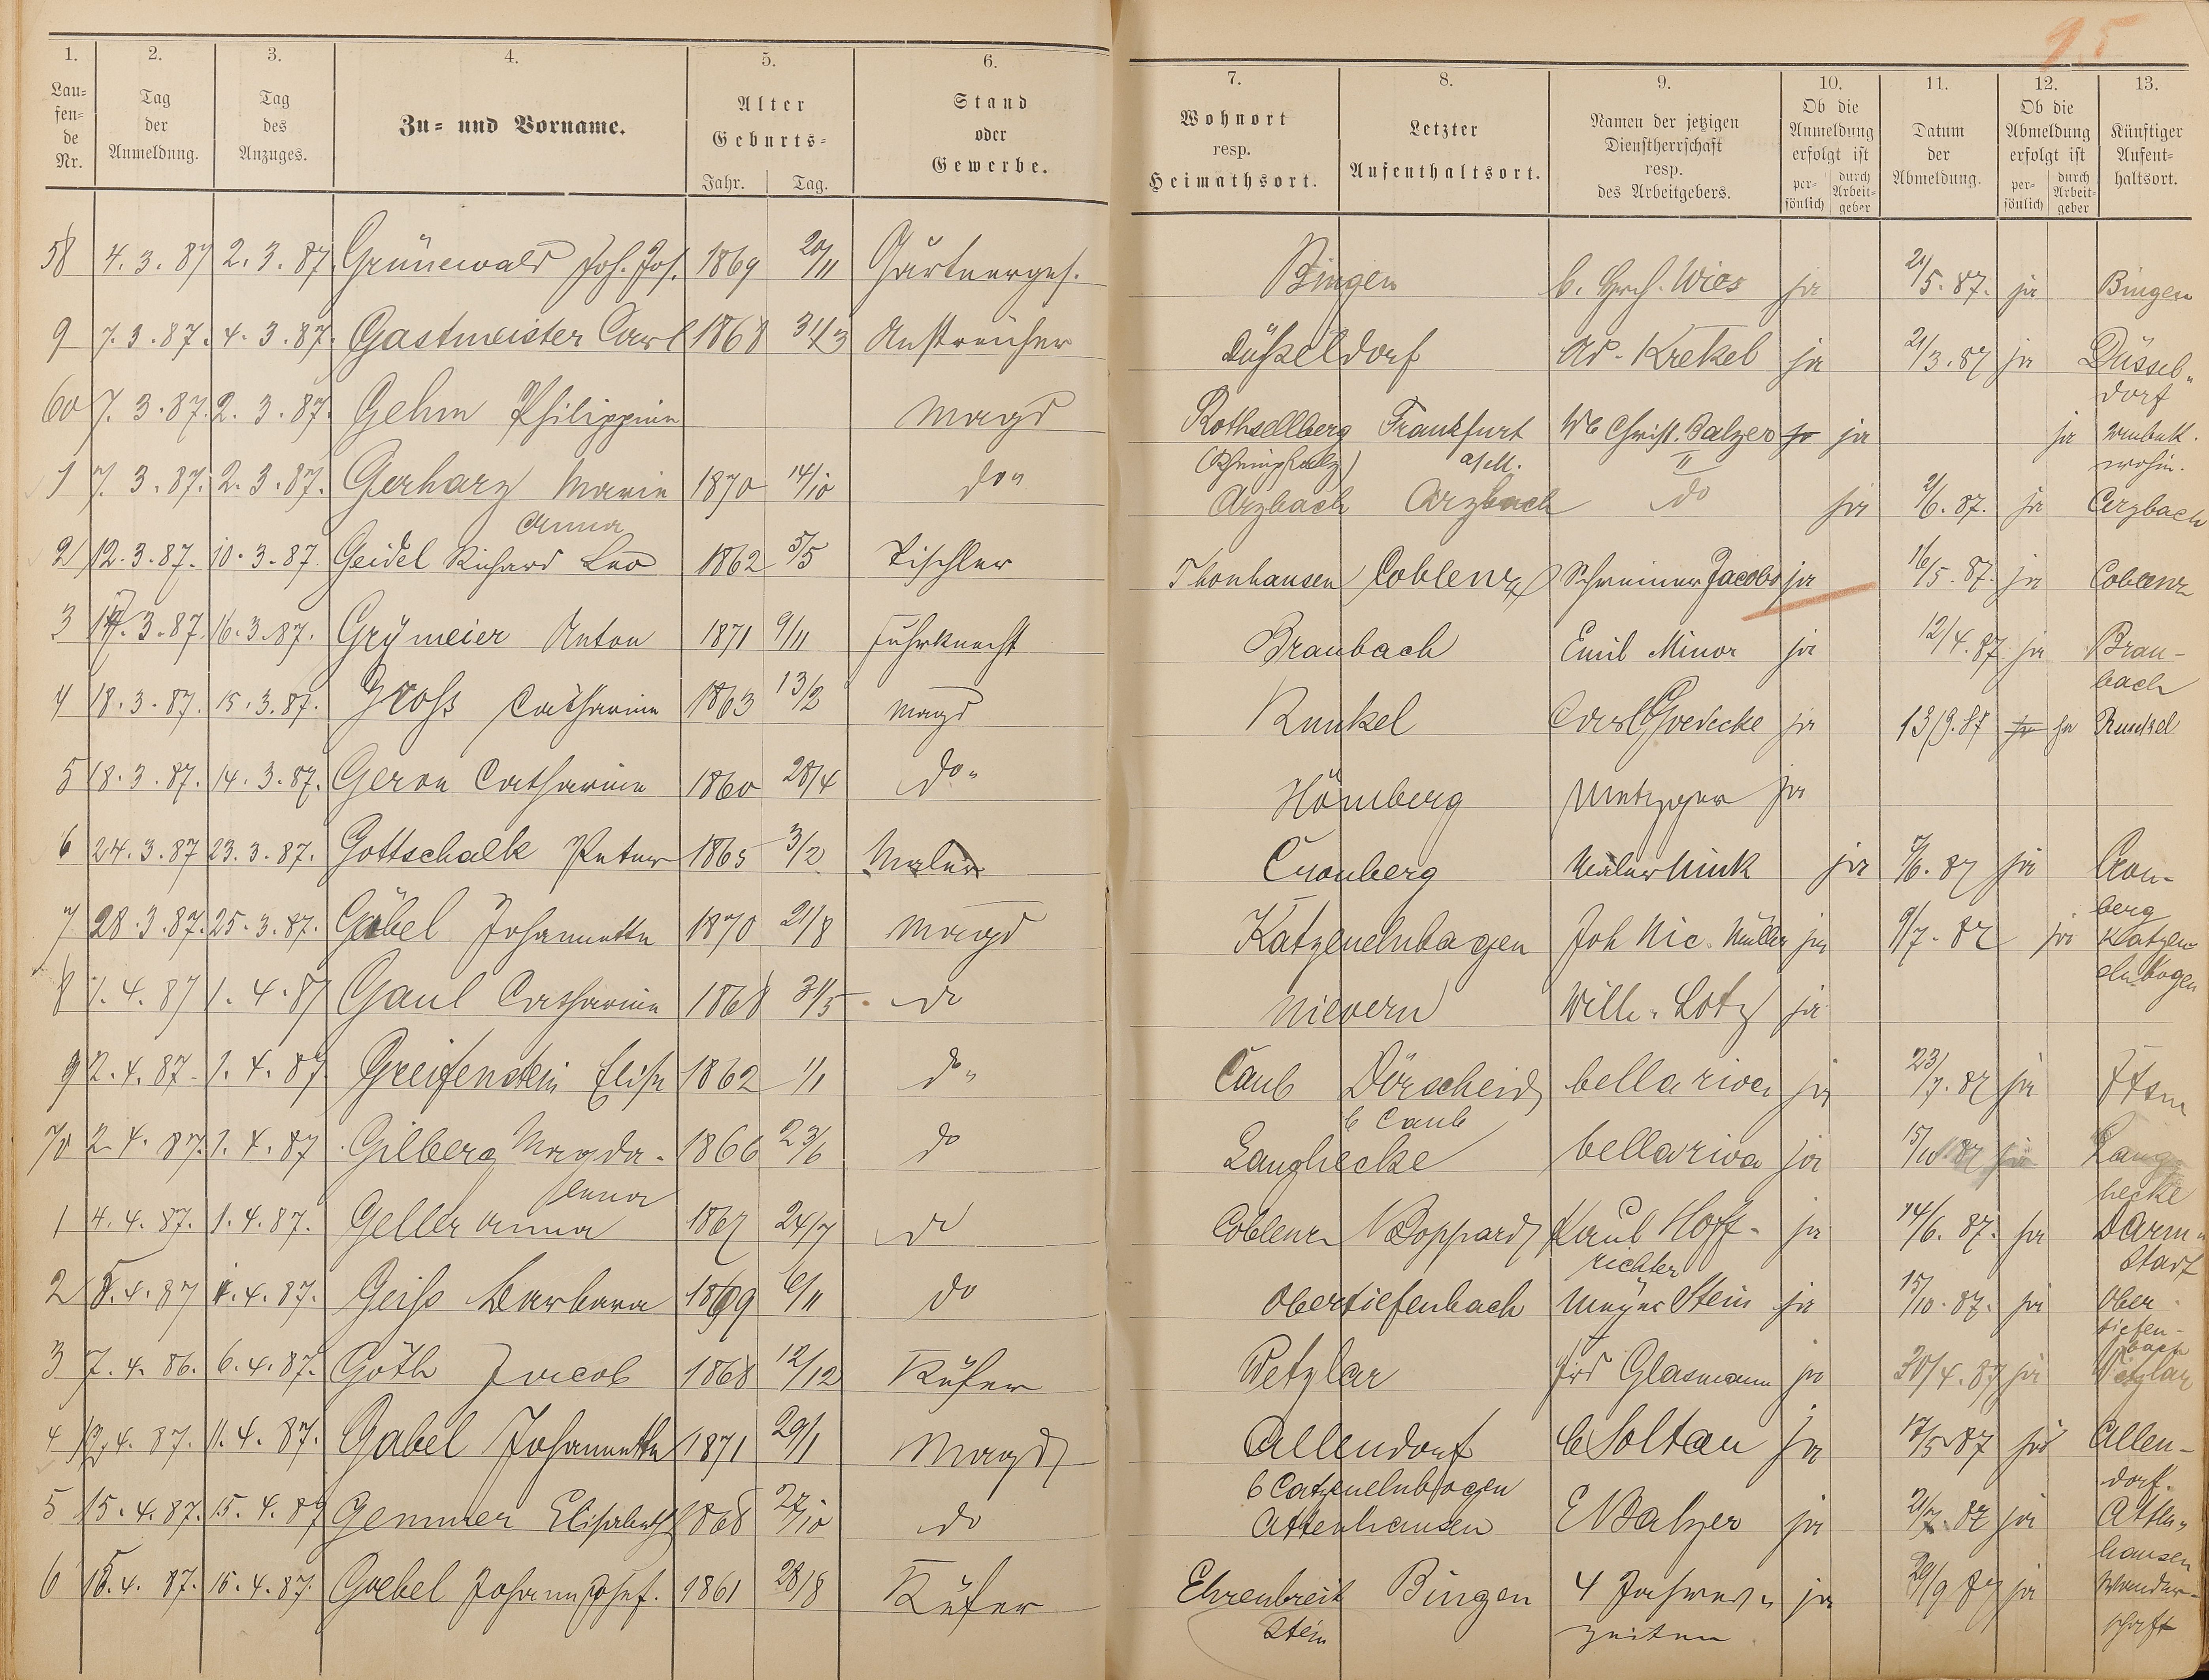 95
1. 2. 3. 4. 5. 6. 7. 8. 9. 10. 11. 12. 13.
Lau=fen=de Nr. Tag der Anmeldung. Tag des Anzuges. Zu= und Vorname. Alter Geburts= Jahr. Tag. Stand oder Gewerbe. Wohnort resp. Heimathsort. Letzter Aufenthaltsort. Namen der jetzigen Dienstherrschaft resp. des Arbeitgebers. Ob die Anmeldung erfolgt ist per=sönlich durch Arbeit=geber Datum der Abmeldung. Ob die Abmeldung erfolgt ist per=sönlich durch Arbeit=geber Künftiger Aufent=haltsort.
58 4. 3. 87 2. 3. 87. Grünewald Joh. Jos. 1869 20/11 Gärtnerges. Bingen b. Wies ja 21/5. 87. ja Bingen
9 7. 3. 87. 4. 3. 87. Gastmeister Carl 1868 31/3 Anstreicher Düßeldorf Ad. Krekel ja 21/3. 87 ja Düssel„
dorf
60 7. 3. 87. 2. 3. 87. Gehm Philippine Magd Rothsellberg Frankfurt Wb Christ. Balzer ja ja ja unbek.
(Rheinpfalz) a/M. II wohin.
1 7. 3. 87. 2. 3. 87. Gerharz Marie 1870 14/10 do„ Arzbach Arzbach do ja 2/6. 87. ja Arzbach
Anna
2 12. 3. 87. 10. 3. 87. Geidel Richard Leo 1862 5/5 Tischler Thonhausen Coblenz Schreiner Jacobs ja 16/5. 87. ja Coblenz
3 17. 3. 87. 16. 3. 87. Grymeier Anton 1871 9/11 Fuhrknecht Braubach Emil Minor ja 12/4. 87 ja Brau-
bach
4 18. 3. 87. 15. 3. 87. Groß Catharine 1863 13/2 Magd Runkel Carl Goedecke ja 13/9. 87 ja ja Runkel
5 18. 3. 87. 14. 3. 87. Geron Catharine 1860 28/4 do„ Hömberg Metzger ja
6 24. 3. 87 23. 3. 87. Gottschalk Peter 1865 3/2 Maler Cronberg Maler Kink ja 7/6. 87 ja Cron-
berg
7 28. 3. 87. 25. 3. 87. Göbel Johannette 1870 21/8 Magd Katzenelnbogen Joh Nic. Müller ja 9/7. 87 ja Katzen
elnbogen
8 1. 4. 87 1. 4. 87 Gaul Catharine 1868 31/5 do Nievern Wilh. Lotz ja
9 2. 4. 87 1. 4. 87 Greifenstein Elise 1862 1/1 do„ Caub Dörscheid bella riva ja 23/7. 87 ja
b Caub
70 2. 4. 87. 1. 4. 87 Gilberg Magda- 1866 23/6 do Langhecke bella riva ja 15/10 87 ja Lang
lena hecke
1 4. 4. 87. 1. 4. 87. Geller Anna 1867 24/7 do Coblenz Boppard Paul Hoff- ja 14/6. 87. ja Darm„
richter stadt
2 5. 4. 87 1. 4. 87. Geiß Barbara 1869 6/11 do Obertiefenbach Meyer Stein ja 15/10. 87. ja Ober
tiefen-
bach
3 7. 4. 86. 6. 4. 87. Göth Jacob 1868 12/12 Küfer Wetzlar Frd Glasmann ja 20/4. 87 ja Wetzlar
4 13. 4. 87. 11. 4. 87. Gabel Johannette 1871 29/1 Magd Allendorf b Soltau ja 17/5 87 ja Allen-
b Catzenelnbogen dorf.
5 15. 4. 87. 15. 4. 87 Gemmer Elisabeth 1868 27/10 do Attenhausen E Balzer ja 21/7. 87 ja Atten„
hausen
6 15. 4. 87. 15. 4. 87. Goebel Johann Josef. 1861 28/8 Küfer Ehrenbreit Bingen 4 Jahres„ ja 29/9 87 ja Wander-
stein zeiten schaft